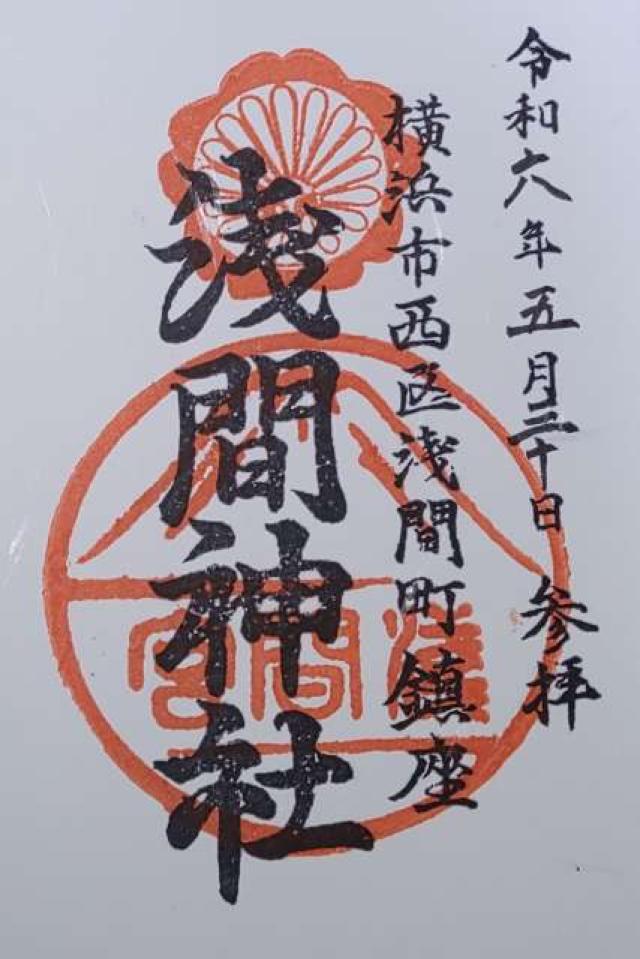 令和六年五月三十日 参拝
横浜市西区浅間町鎮座
浅間神社
浅間宮